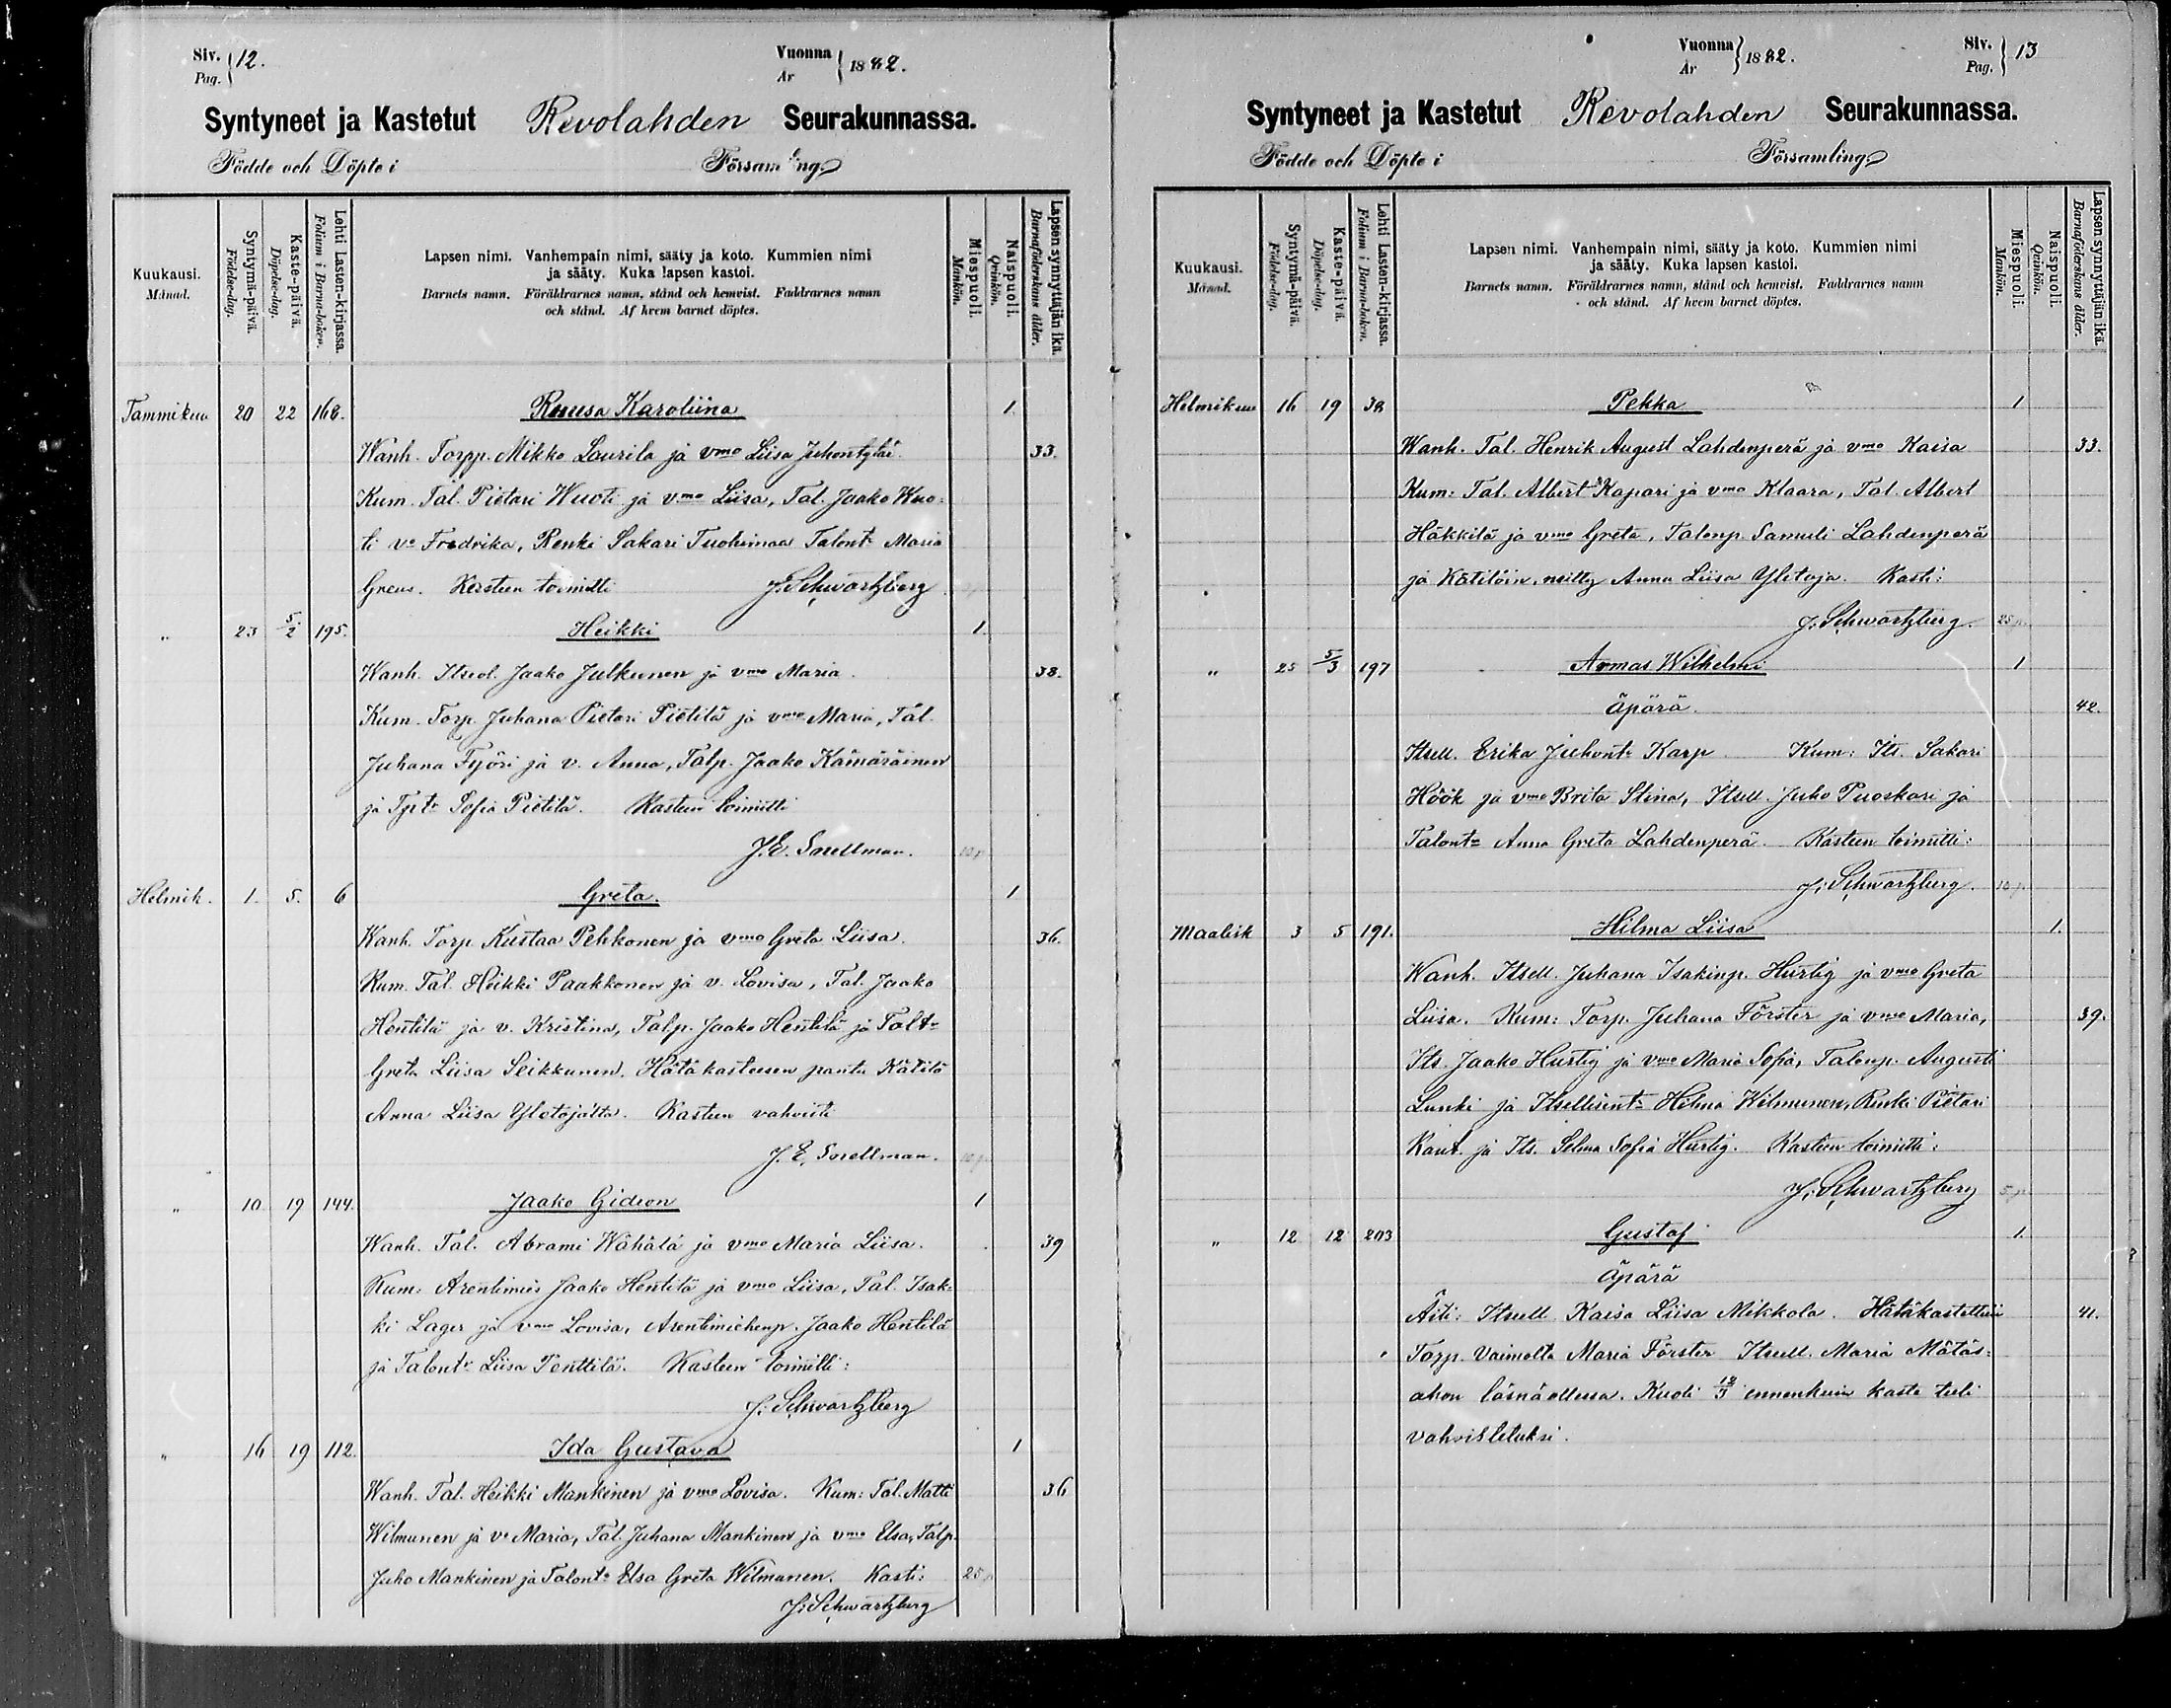 Siv. 12.
Pag.
Vuonna 1882.
År
Syntyneet ja Kastetut Revolahden Seurakunnassa.
Födde och Döpte i Församling
Kuukausi.
Månad.
Syntymä-päivä.
Födelse-dag.
Kaste-päivä.
Döpelse-dag.
Lehti Lasten-kirjassa.
Folium i Barna-boken.
Lapsen nimi. Vanhempain nimi, sääty ja koto. Kummien nimi
ja sääty. Kuka lapsen kastoi.
Barnets namn. Föräldrarnes namn, stånd och hemvist. Faddrarnes namn
och stånd. Af hvem barnet döptes.
Miespuoli.
Mankön.
Naispuoli.
Qvinkön.
Lapsen synnyttäjän ikä.
Barnaföderskans ålder.
Tammikuu 20 22 168. Ruusa Karoliina 1.
Wanh. Torpp. Mikko Laurila ja vmo Liisa Juhontytär. 33.
Kum. Tal. Pietari Wuoti ja vmo Liisa, Tal. Jaako Wuo-
ti vo Fredrika, Renki Sakari Tuohimaa Talontr Maria
Greus. Kasteen toimitti J. Schwartzberg
" 23 5/2 195. Heikki 1.
Wanh. Itseol. Jaako Julkunen ja vmo Maria. 38.
Kum. Torp. Juhana Pietari Pietilä ja vmo Maria, Tal.
Juhana Työri ja v. Anna, Talp. Jaako Kämäräinen
ja Tptr Sofia Pietilä. Kasteen toimitti
J. E. Snellman. 10 p
Helmik. 1. 5. 6 Greta. 1
Wanh. Torp. Kustaa Pehkonen ja vmo Greta Liisa. 36.
Kum. Tal. Heikki Paakkonen ja v. Lovisa, Tal. Jaako
Hentilä ja v. Kristina, Talp. Jaako Hentilä ja Taltr
Greta Liisa Seikkunen. Hätäkasteesen pantu Kätilö
Anna Liisa Yletäjältä. Kasteen vahvisti
J. E. Snellman. 10 p
" 10 19 144. Jaako Gideon 1
Wanh. Tal. Abrami Wähälä ja vmo Maria Liisa. 39
Kum: Arentimies Jaako Hentilä ja vmo Liisa, Tal. Isak-
ki Lager ja vmo Lovisa, Arentimiehenp. Jaako Hentilä
ja Talontr Liisa Penttilä. Kasteen toimitti:
J. Schwartzberg
" 16 19 112. Ida Gustava 1
Wanh. Tal. Heikki Mankinen ja vmo Lovisa. Kum: Tal. Matti 36
Wilmunen ja vo Maria, Tal. Juhana Mankinen ja vmo Elsa, Talp.
Juho Mankinen ja Talontr Elsa Greta Wilmunen. Kasti: 25 p
J. Schwartzberg
Vuonna 1882.
År
Siv. 13
Pag.
Syntyneet ja Kastetut Revolahden Seurakunnassa.
Födde och Döpte i Församling
Kuukausi.
Månad.
Syntymä-päivä.
Födelse-dag.
Kaste-päivä.
Döpelse-dag.
Lehti Lasten-kirjassa.
Folium i Barna-boken.
Lapsen nimi. Vanhempain nimi, sääty ja koto. Kummien nimi
ja sääty. Kuka lapsen kastoi.
Barnets namn. Föräldrarnes namn, stånd och hemvist. Faddrarnes namn
och stånd. Af hvem barnet döptes.
Miespuoli.
Mankön.
Naispuoli.
Qvinkön.
Lapsen synnyttäjän ikä.
Barnaföderskans ålder.
Helmikuu 16 19 38 Pekka 1
Wanh. Tal. Henrik August Lahdenperä ja vmo Kaisa 33.
Kum: Tal. Albert Kapari ja vmo Klaara, Tal. Albert
Häkkilä ja vmo Greta, Talonp. Samuli Lahdenperä
ja Kätilöin. neitty Anna Liisa Yletaja. Kasti:
J. Schwartzberg. 25 p
" 25 5/3 197 Armas Wilhelmi 1
Äpärä. 42.
Itsell. Erika Juhontr Karp Kum: Its. Sakari
Höök ja vmo Brita Stina, Itsell. Juho Puoskari ja
Talontr Anna Greta Lahdenperä. Kasteen toimitti:
J. Schwartzberg. 10 p
Maalisk 3 5 191. Hilma Liisa 1.
Wanh. Itsell. Juhana Isakinp. Hurtig ja vmo Greta
Liisa. Kum: Torp. Juhana Förster ja vmo Maria, 39.
Its. Jaako Hurtig ja vmo Maria Sofia, Talonp. Augusti
Lunki ja Itsellisentr Helma Wilmunen, Renki Pietari
Kant. ja Its. Selma Sofia Hurtig. Kasteen toimitti:
J. Schwartzberg 5 p
" 12 12 203 Gustaf 1.
Äpärä
Äiti: Itsell. Kaisa Liisa Mikkola. Hätäkastettiin 41.
Torp. vaimolta Maria Förster Itsell. Maria Mätäs-
ahon läsnäollessa. Kuoli 12/3 ennenkuin kaste tuli
vahvistetuksi.